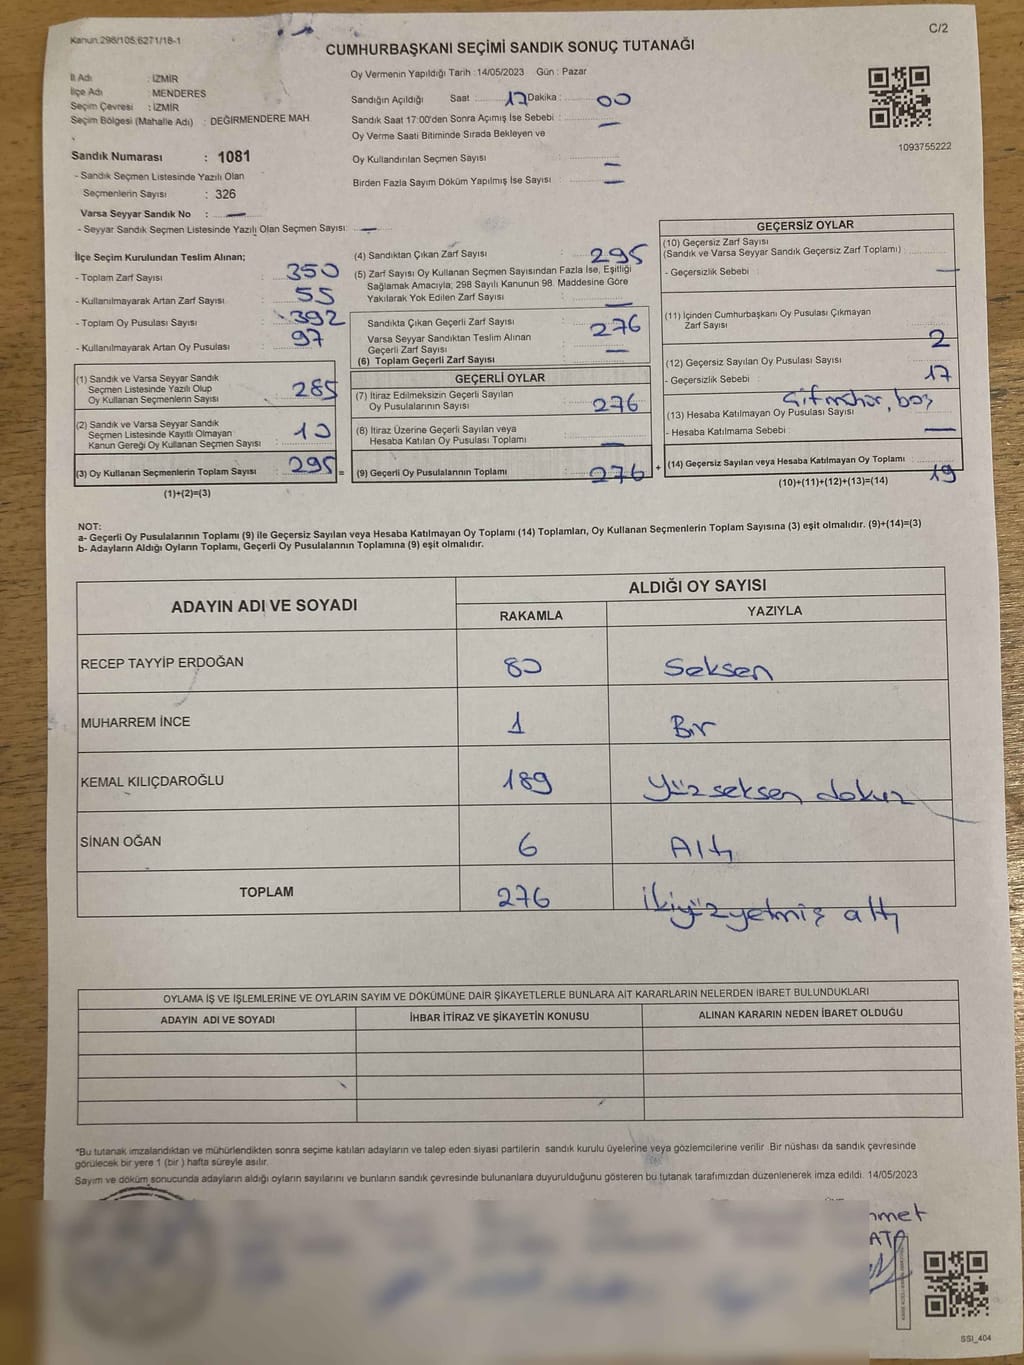 Kanun:298/105,6271/18-1
C/2
CUMHURBAŞKANI SEÇİMİ SANDIK SONUÇ TUTANAĞI
İl Adı : İZMİR
İlçe Adı : MENDERES
Seçim Çevresi : İZMİR
Seçim Bölgesi (Mahalle Adı) : DEĞİRMENDERE MAH.
Sandık Numarası : 1081
- Sandık Seçmen Listesinde Yazılı Olan
Seçmenlerin Sayısı : 326
Varsa Seyyar Sandık No : —
- Seyyar Sandık Seçmen Listesinde Yazılı Olan Seçmen Sayısı: —
Oy Vermenin Yapıldığı Tarih :14/05/2023 Gün : Pazar
Sandığın Açıldığı Saat : 17 Dakika : 00
Sandık Saat 17:00'den Sonra Açımış İse Sebebi : —
Oy Verme Saati Bitiminde Sırada Bekleyen ve
Oy Kullandırılan Seçmen Sayısı —
Birden Fazla Sayım Döküm Yapılmış İse Sayısı : —
1093755222
İlçe Seçim Kurulundan Teslim Alınan;
- Toplam Zarf Sayısı : 350
- Kullanılmayarak Artan Zarf Sayısı : 55
- Toplam Oy Pusulası Sayısı : 392
- Kullanılmayarak Artan Oy Pusulası : 97
(1) Sandık ve Varsa Seyyar Sandık
Seçmen Listesinde Yazılı Olup
Oy Kullanan Seçmenlerin Sayısı : 285
(2) Sandık ve Varsa Seyyar Sandık
Seçmen Listesinde Kayıtlı Olmayan
Kanun Gereği Oy Kullanan Seçmen Sayısı : 10
(3) Oy Kullanan Seçmenlerin Toplam Sayısı : 295 =
(1)+(2)=(3)
(4) Sandıktan Çıkan Zarf Sayısı : 295
(5) Zarf Sayısı Oy Kullanan Seçmen Sayısından Fazla İse, Eşitliği
Sağlamak Amacıyla, 298 Sayılı Kanunun 98. Maddesine Göre
Yakılarak Yok Edilen Zarf Sayısı : —
Sandıkta Çıkan Geçerli Zarf Sayısı : 276
Varsa Seyyar Sandıktan Teslim Alınan
Geçerli Zarf Sayısı : —
(6) Toplam Geçerli Zarf Sayısı
GEÇERLİ OYLAR
(7) İtiraz Edilmeksizin Geçerli Sayılan
Oy Pusulalarının Sayısı : 276
(8) İtiraz Üzerine Geçerli Sayılan veya
Hesaba Katılan Oy Pusulası Toplamı : —
(9) Geçerli Oy Pusulalarının Toplamı : 276 +
GEÇERSİZ OYLAR
(10) Geçersiz Zarf Sayısı
(Sandık ve Varsa Seyyar Sandık Geçersiz Zarf Toplamı) :
- Geçersizlik Sebebi : —
(11) İçinden Cumhurbaşkanı Oy Pusulası Çıkmayan
Zarf Sayısı : 2
(12) Geçersiz Sayılan Oy Pusulası Sayısı : 17
- Geçersizlik Sebebi :
(13) Hesaba Katılmayan Oy Pusulası Sayısı :
- Hesaba Katılmama Sebebi : —
(14) Geçersiz Sayılan veya Hesaba Katılmayan Oy Toplamı : 19
(10)+(11)+(12)+(13)=(14)
NOT:
a- Geçerli Oy Pusulalarının Toplamı (9) ile Geçersiz Sayılan veya Hesaba Katılmayan Oy Toplamı (14) Toplamları, Oy Kullanan Seçmenlerin Toplam Sayısına (3) eşit olmalıdır. (9)+(14)=(3)
b- Adayların Aldığı Oyların Toplamı, Geçerli Oy Pusulalarının Toplamına (9) eşit olmalıdır.
ADAYIN ADI VE SOYADI
ALDIĞI OY SAYISI
RAKAMLA YAZIYLA
RECEP TAYYİP ERDOĞAN 80 Seksen
MUHARREM İNCE 1 Bir
KEMAL KILIÇDAROĞLU 189 Yüzseksen dokuz
SİNAN OĞAN 6 Altı
TOPLAM 276 İkiyüzyetmiş altı
OYLAMA İŞ VE İŞLEMLERİNE VE OYLARIN SAYIM VE DÖKÜMÜNE DAİR ŞİKAYETLERLE BUNLARA AİT KARARLARIN NELERDEN İBARET BULUNDUKLARI
ADAYIN ADI VE SOYADI İHBAR İTİRAZ VE ŞİKAYETİN KONUSU ALINAN KARARIN NEDEN İBARET OLDUĞU
*Bu tutanak imzalandıktan ve mühürlendikten sonra seçime katılan adayların ve talep eden siyasi partilerin sandık kurulu üyelerine veya gözlemcilerine verilir. Bir nüshası da sandık çevresinde
görülecek bir yere 1 (bir ) hafta süreyle asılır.
Sayım ve döküm sonucunda adayların aldığı oyların sayılarını ve bunların sandık çevresinde bulunanlara duyurulduğunu gösteren bu tutanak tarafımızdan düzenlenerek imza edildi. 14/05/2023
SSI_404